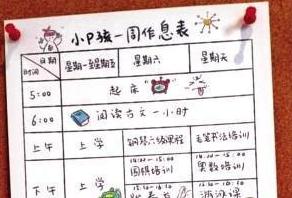 小P孩一周作息表
日期
时间
星期一至星期五
星期六
星期天
5:00
起床
6:00
阅读古文一小时
上午
上学
钢琴六级课程
毛笔书法培训
14:00-15:00
围棋培训
14:00-15:00
奥数培训
下午
上学
游泳课